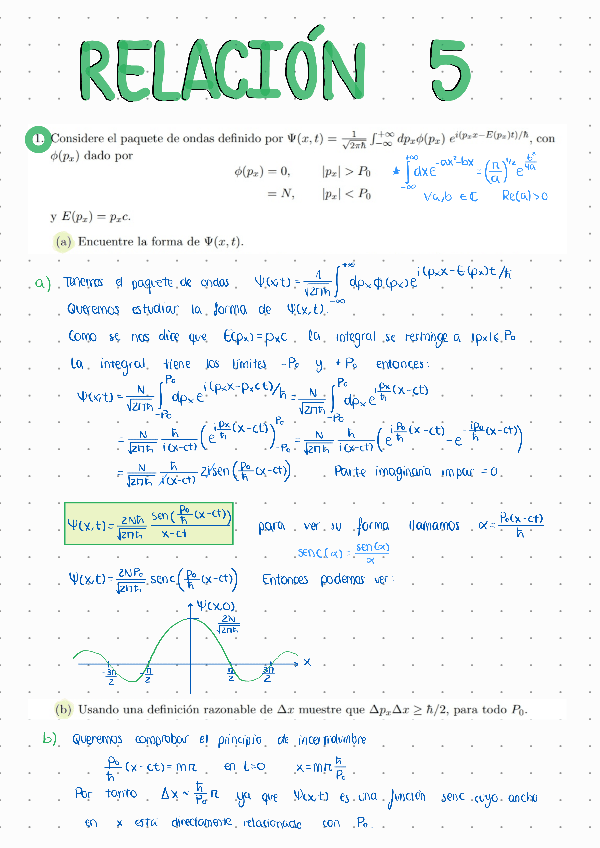 RELACIÓN 5
1. Considere el paquete de ondas definido por Ψ(x, t) = 1/√2πħ ∫_{-∞}^{+∞} dpₓφ(pₓ) e^{i(pₓx−E(pₓ)t)/ħ}, con
φ(pₓ) dado por
φ(pₓ) = 0, |pₓ| > P₀
= N, |pₓ| < P₀
* ∫_{-∞}^{+∞} dx e^{-ax²-bx} = (π/a)^{1/2} e^{b²/4a}
∀a,b ∈ ℂ Re(a)>0
y E(pₓ) = pₓc.
(a) Encuentre la forma de Ψ(x, t).
a) Tenemos el paquete de ondas Ψ(x,t) = 1/√2πħ ∫_{-∞}^{+∞} dpₓ φ(pₓ) e^{i(pₓx-E(pₓ)t/ħ}
Queremos estudiar la forma de Ψ(x,t).
Como se nos dice que E(pₓ)=pₓc, la integral se restringe a |pₓ|≤P₀
La integral tiene los límites -P₀ y +P₀ entonces:
Ψ(x,t) = N/√2πħ ∫_{-P₀}^{P₀} dpₓ e^{i(pₓx-pₓct)/ħ} = N/√2πħ ∫_{-P₀}^{P₀} dpₓ e^{ipₓ/ħ(x-ct)}
= N/√2πħ ħ/i(x-ct) (e^{ipₓ/ħ(x-ct)})_{-P₀}^{P₀} = N/√2πħ ħ/i(x-ct) (e^{ip₀/ħ(x-ct)} - e^{-ip₀/ħ(x-ct)})
= N/√2πħ ħ/i(x-ct) 2i sen(p₀/ħ(x-ct)). Parte imaginaria impar = 0.
Ψ(x,t) = 2Nħ/√2πħ sen(p₀/ħ(x-ct))/x-ct para ver su forma llamamos α = P₀(x-ct)/ħ
senc(α) = sen(α)/α
Ψ(x,t) = 2NP₀/√2πħ senc(p₀/ħ(x-ct)) Entonces podemos ver:
Ψ(x,0)
2N/√2πħ
x
-3π/2 -π/2 π/2 3π/2
(b) Usando una definición razonable de Δx muestre que ΔpₓΔx ≥ ħ/2, para todo P₀.
b) Queremos comprobar el principio de incertidumbre
p₀/ħ (x-ct) = mπ en t=0 x = mπ ħ/P₀
Por tanto Δx ~ ħ/P₀ π ya que Ψ(x,t) es una función senc cuyo ancho
en x está directamente relacionado con P₀.